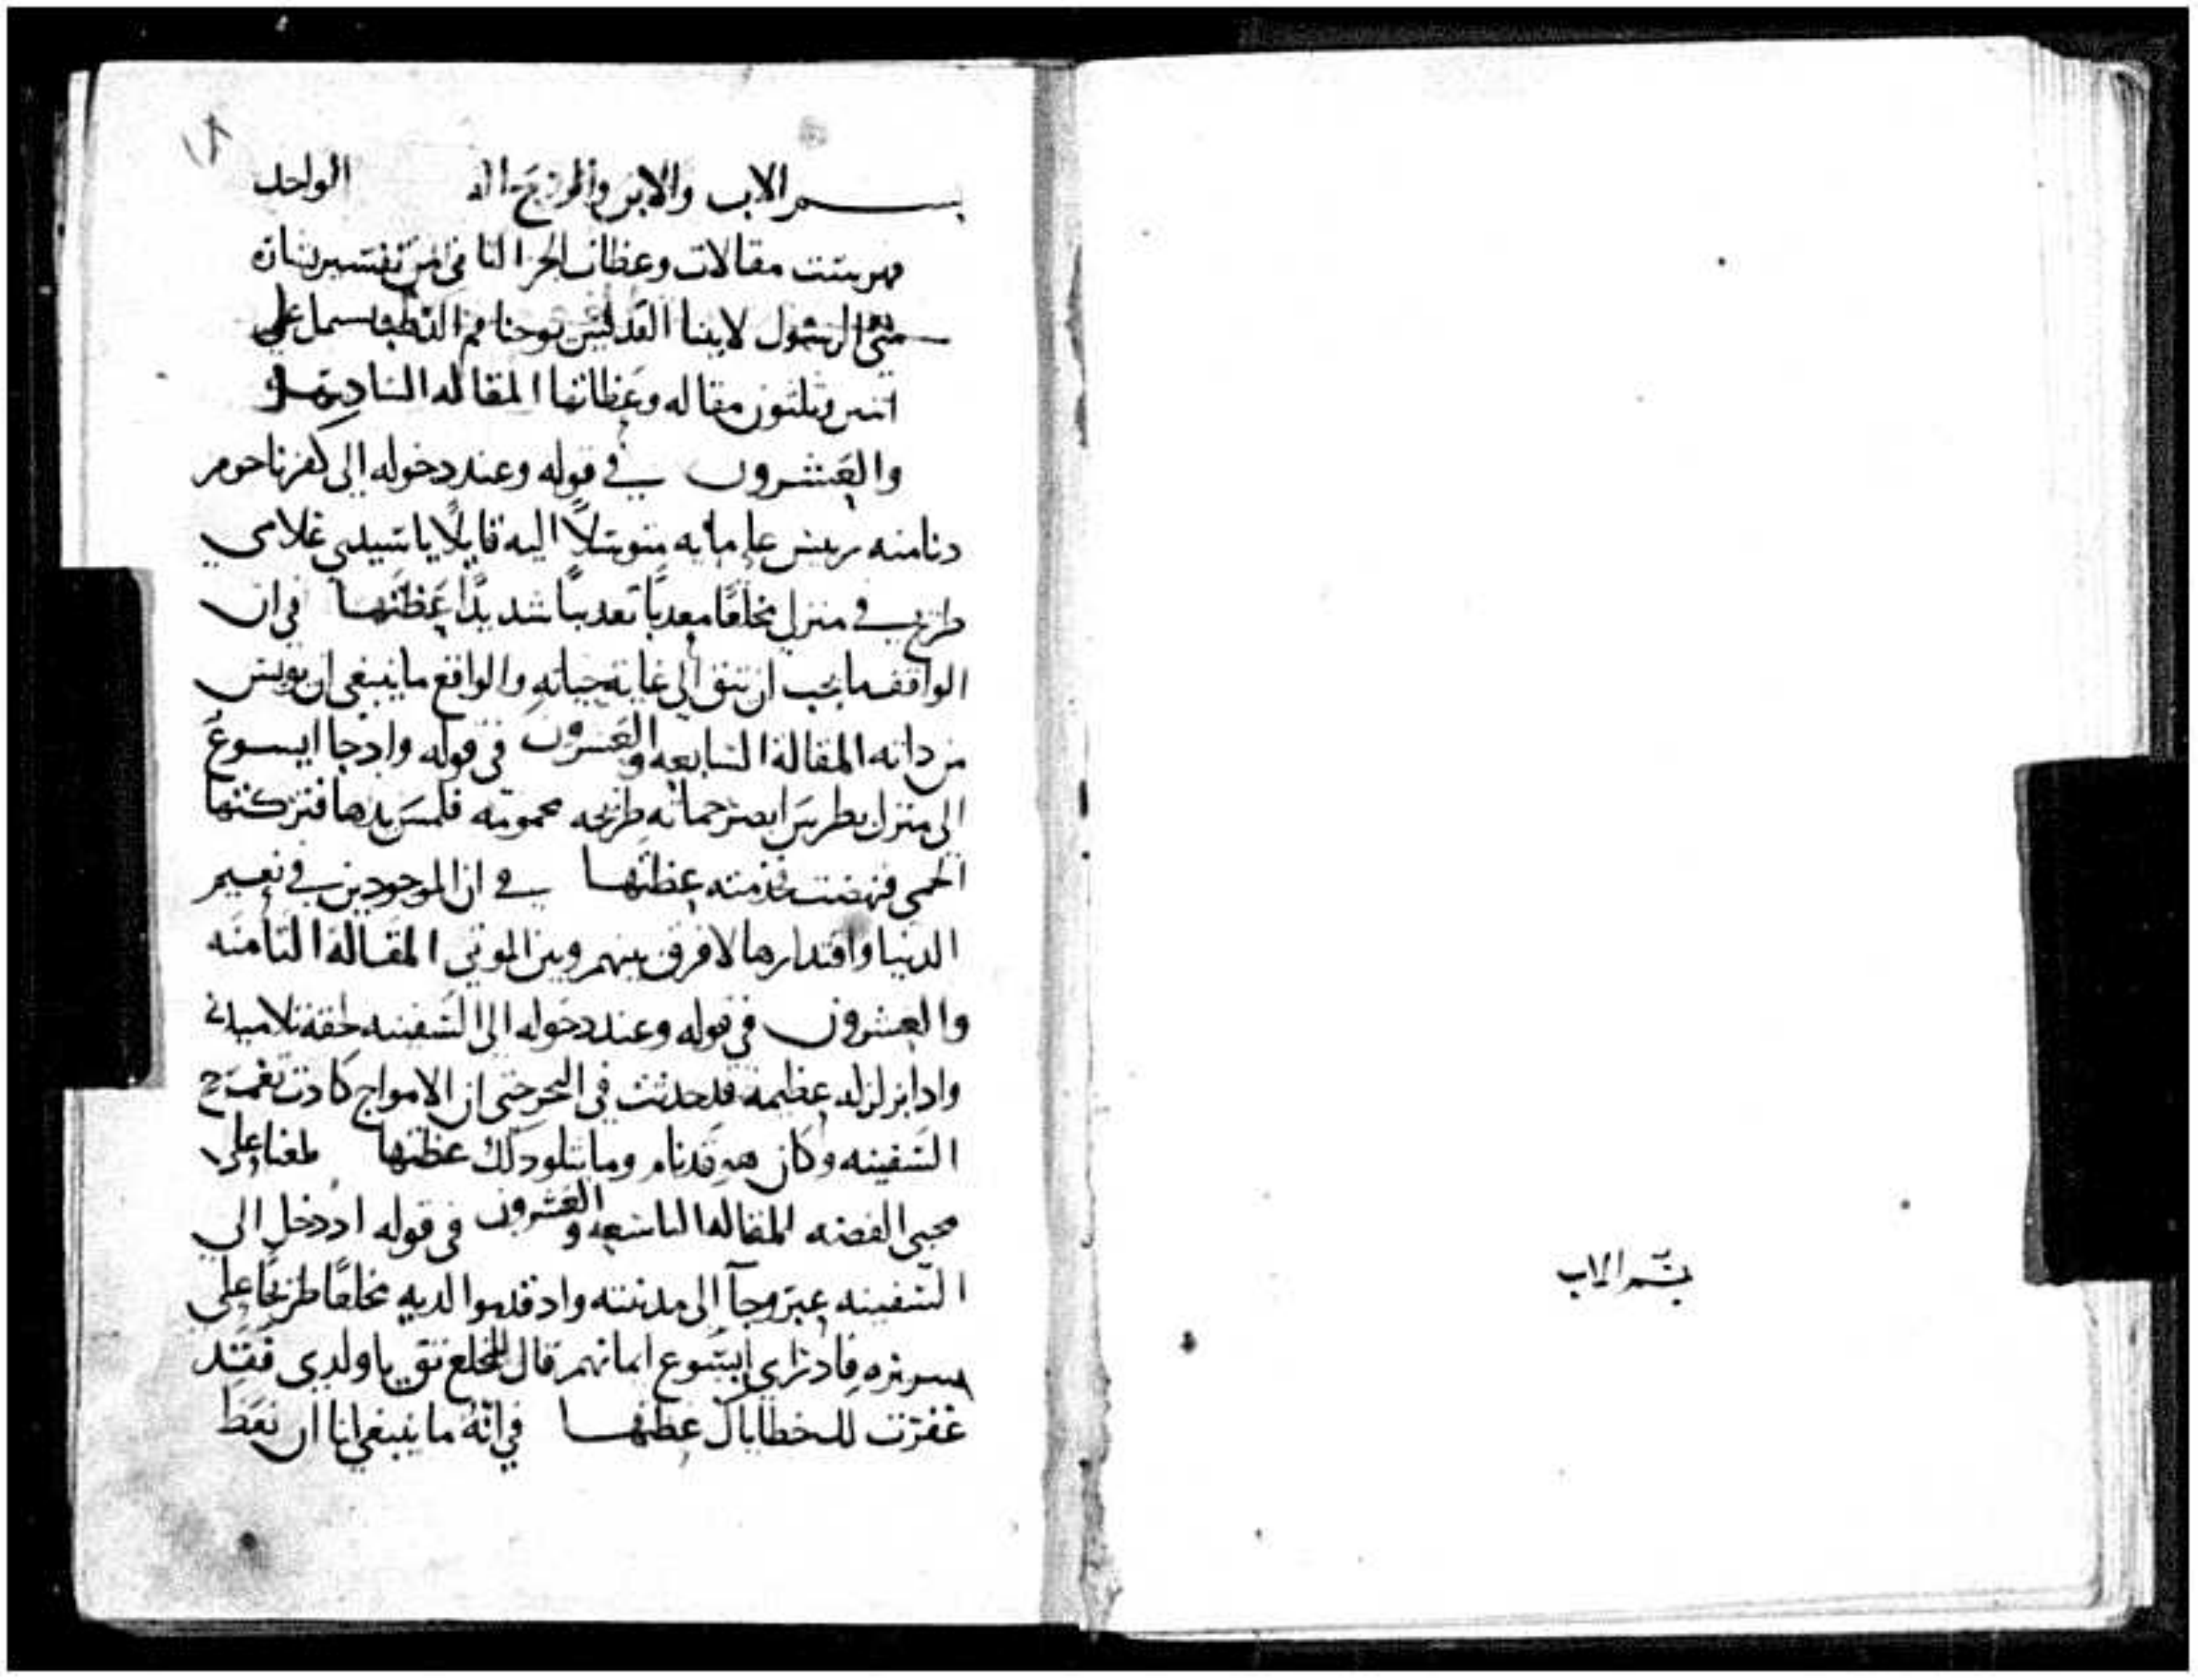 بسم الاب
بسم الاب والابن والروح اله الواحد
فهرست مقالات وعظات الجز الثاني من تفسير بشارة
متى الرسول لابينا القديس يوحنا فم الذهب يشتمل على
اثنين وثلثون مقاله وعظاتها المقاله السادسه
والعشرون في قوله وعند دخوله الى كفرناحوم
دنا منه رييس على مايه متوسلاً اليه قايلاً يا سيدي غلامي
طريح في منزلي مخلعًا معذبًا تعذيبًا شديدًا عظتها في ان
الواقف ما يجب ان يثق الى غاية حياته والواقع ما ينبغي ان يويس
من ذاته المقالة السابعه والعشرون في قوله واذ جا ايسوع
الى منزل بطرس ابصر حماته طريحه محمومه فلمس يدها فتركتها
الحمى فنهضت خدمته عظتها في ان الموجودين في نعيم
الدنيا واقتدارها لا فرق بينهم وبين الموتى المقالة الثامنه
والعشرون في قوله وعند دخوله الى السفينه لحقه تلاميذه
واذا زلزله عظيمه قد حدثت في البحر حتى ان الامواج كادت تغمر
السفينه وكان هو قد نام وما يتلو ذلك عظتها على
محبي الفضه المقاله التاسعه والعشرون في قوله اذ دخل الى
السفينه عبر وجآ الى مدينته واذ قدموا لديه مخلعًا طريحًا على
سريره فاذ راى ايسوع ايمانهم قال للمخلع ثق يا ولدي فقد
غفرت لك خطاياك عظتها في انه ما ينبغي لنا ان نعظ